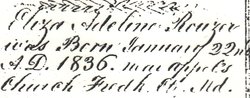 Eliza Adeline Rouzer
was Born January 22nd
A.D. 1836. near appel's
Church Fredk Ct. Md.